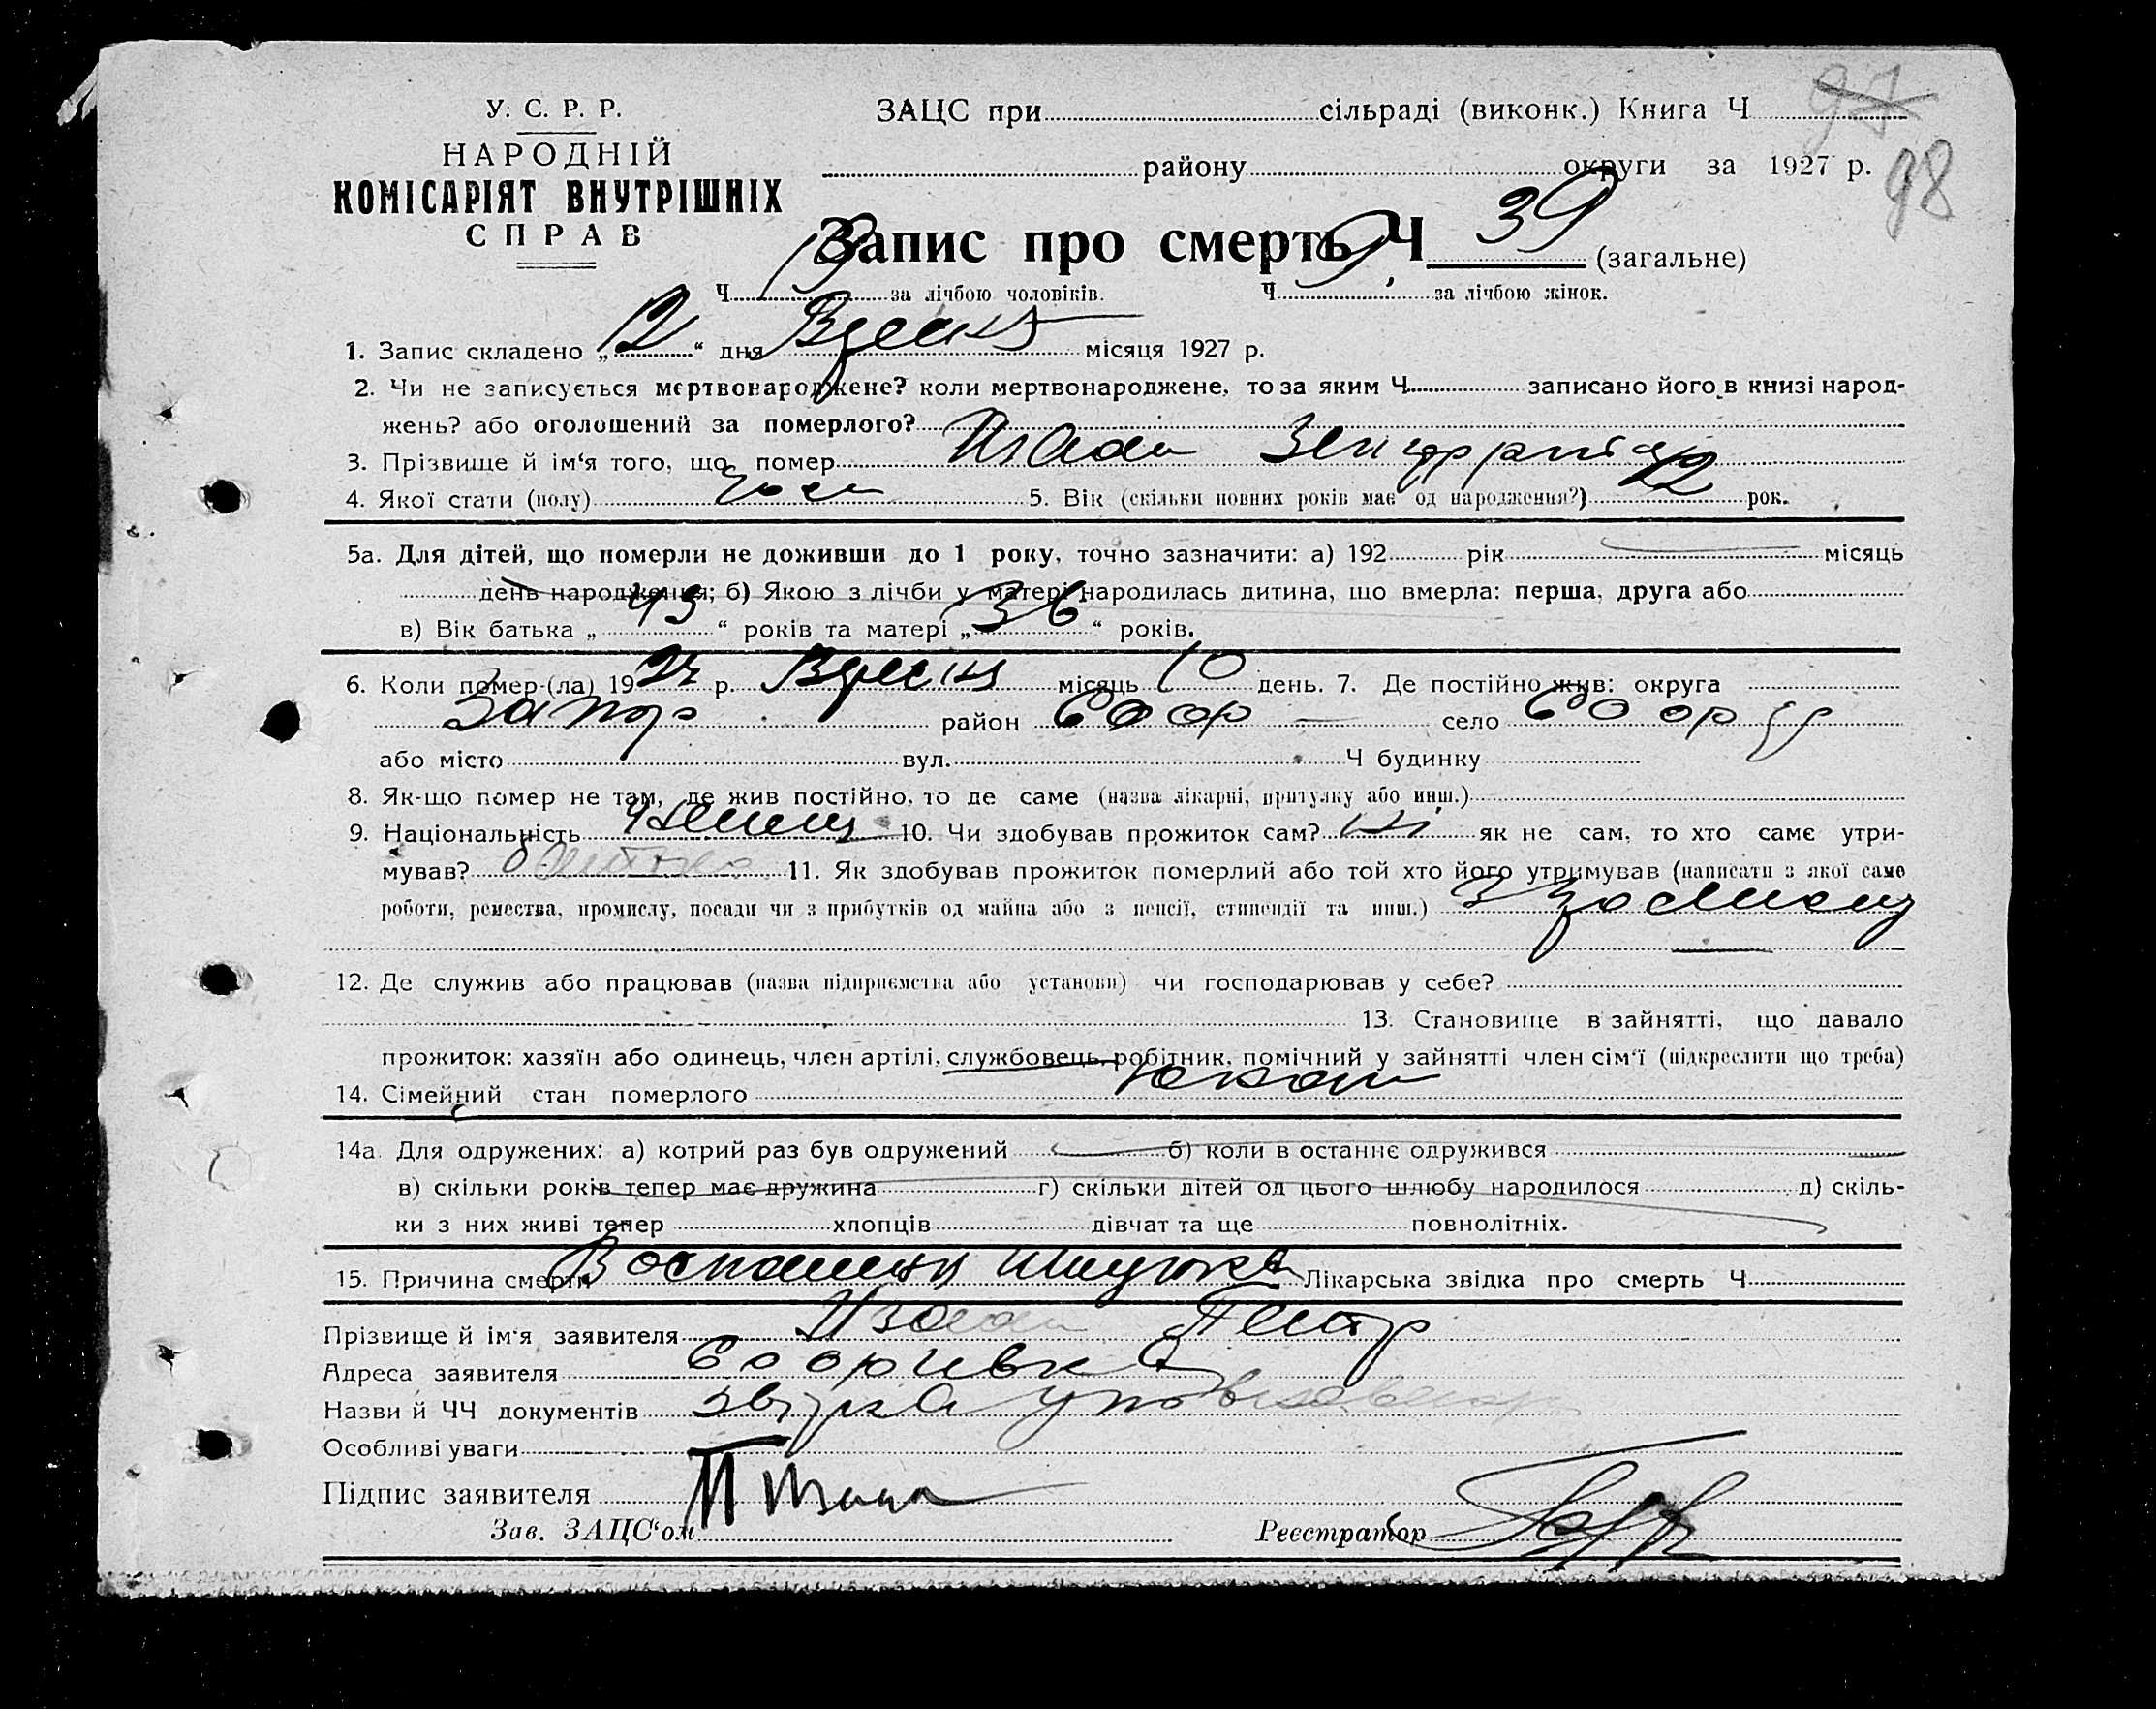 97
98
У. С. Р. Р.
НАРОДНІЙ
КОМІСАРІЯТ ВНУТРІШНІХ
СПРАВ
ЗАЦС при сільраді (виконк.) Книга Ч
району округи за 1927 р.
Запис про смерть Ч 39 (загальне)
Ч за лічбою чоловіків. Ч за лічбою жінок.
1. Запис складено „12“ дня Вресня місяця 1927 р.
2. Чи не записується мертвонароджене? коли мертвонароджене, то за яким Ч записано його в книзі народ-
жень? або оголошений за померлого?
3. Прізвище й ім'я того, що помер
4. Якої стати (полу) 5. Вік (скільки повних років має од народження?) рок.
5а. Для дітей, що померли не доживши до 1 року, точно зазначити: а) 192 рік місяць
день народження; б) Якою з лічби у матері народилась дитина, що вмерла: перша, друга або
в) Вік батька „43“ років та матері „36“ років.
6. Коли помер-(ла) 1927 р. Вресня місяць 10 день. 7. Де постійно жив: округа
Запор район село
або місто вул. Ч будинку
8. Як-що помер не там, де жив постійно, то де саме (назва лікарні, притулку або инш.)
9. Національність 10. Чи здобував прожиток сам? ні як не сам, то хто саме утри-
мував? батько 11. Як здобував прожиток померлий або той хто його утримував (написати з якої саме
роботи, ремества, промислу, посади чи з прибутків од майна або з пенсії, стипендії та инш.) З
12. Де служив або працював (назва підприємства або установи) чи господарював у себе?
13. Становище в зайнятті, що давало
прожиток: хазяїн або одинець, член артілі, службовець, робітник, помічний у зайнятті член сім'ї (підкреслити що треба)
14. Сімейний стан померлого
14а. Для одружених: а) котрий раз був одружений б) коли в останнє одружився
в) скільки років тепер має дружина г) скільки дітей од цього шлюбу народилося д) скіль-
ки з них живі тепер хлопців дівчат та ще повнолітніх.
15. Причина смерти Лікарська звідка про смерть Ч
Прізвище й ім'я заявителя Изаак Петр
Адреса заявителя
Назви й ЧЧ документів
Особливі уваги
Підпис заявителя
Зав. ЗАЦС'ом Реєстратор